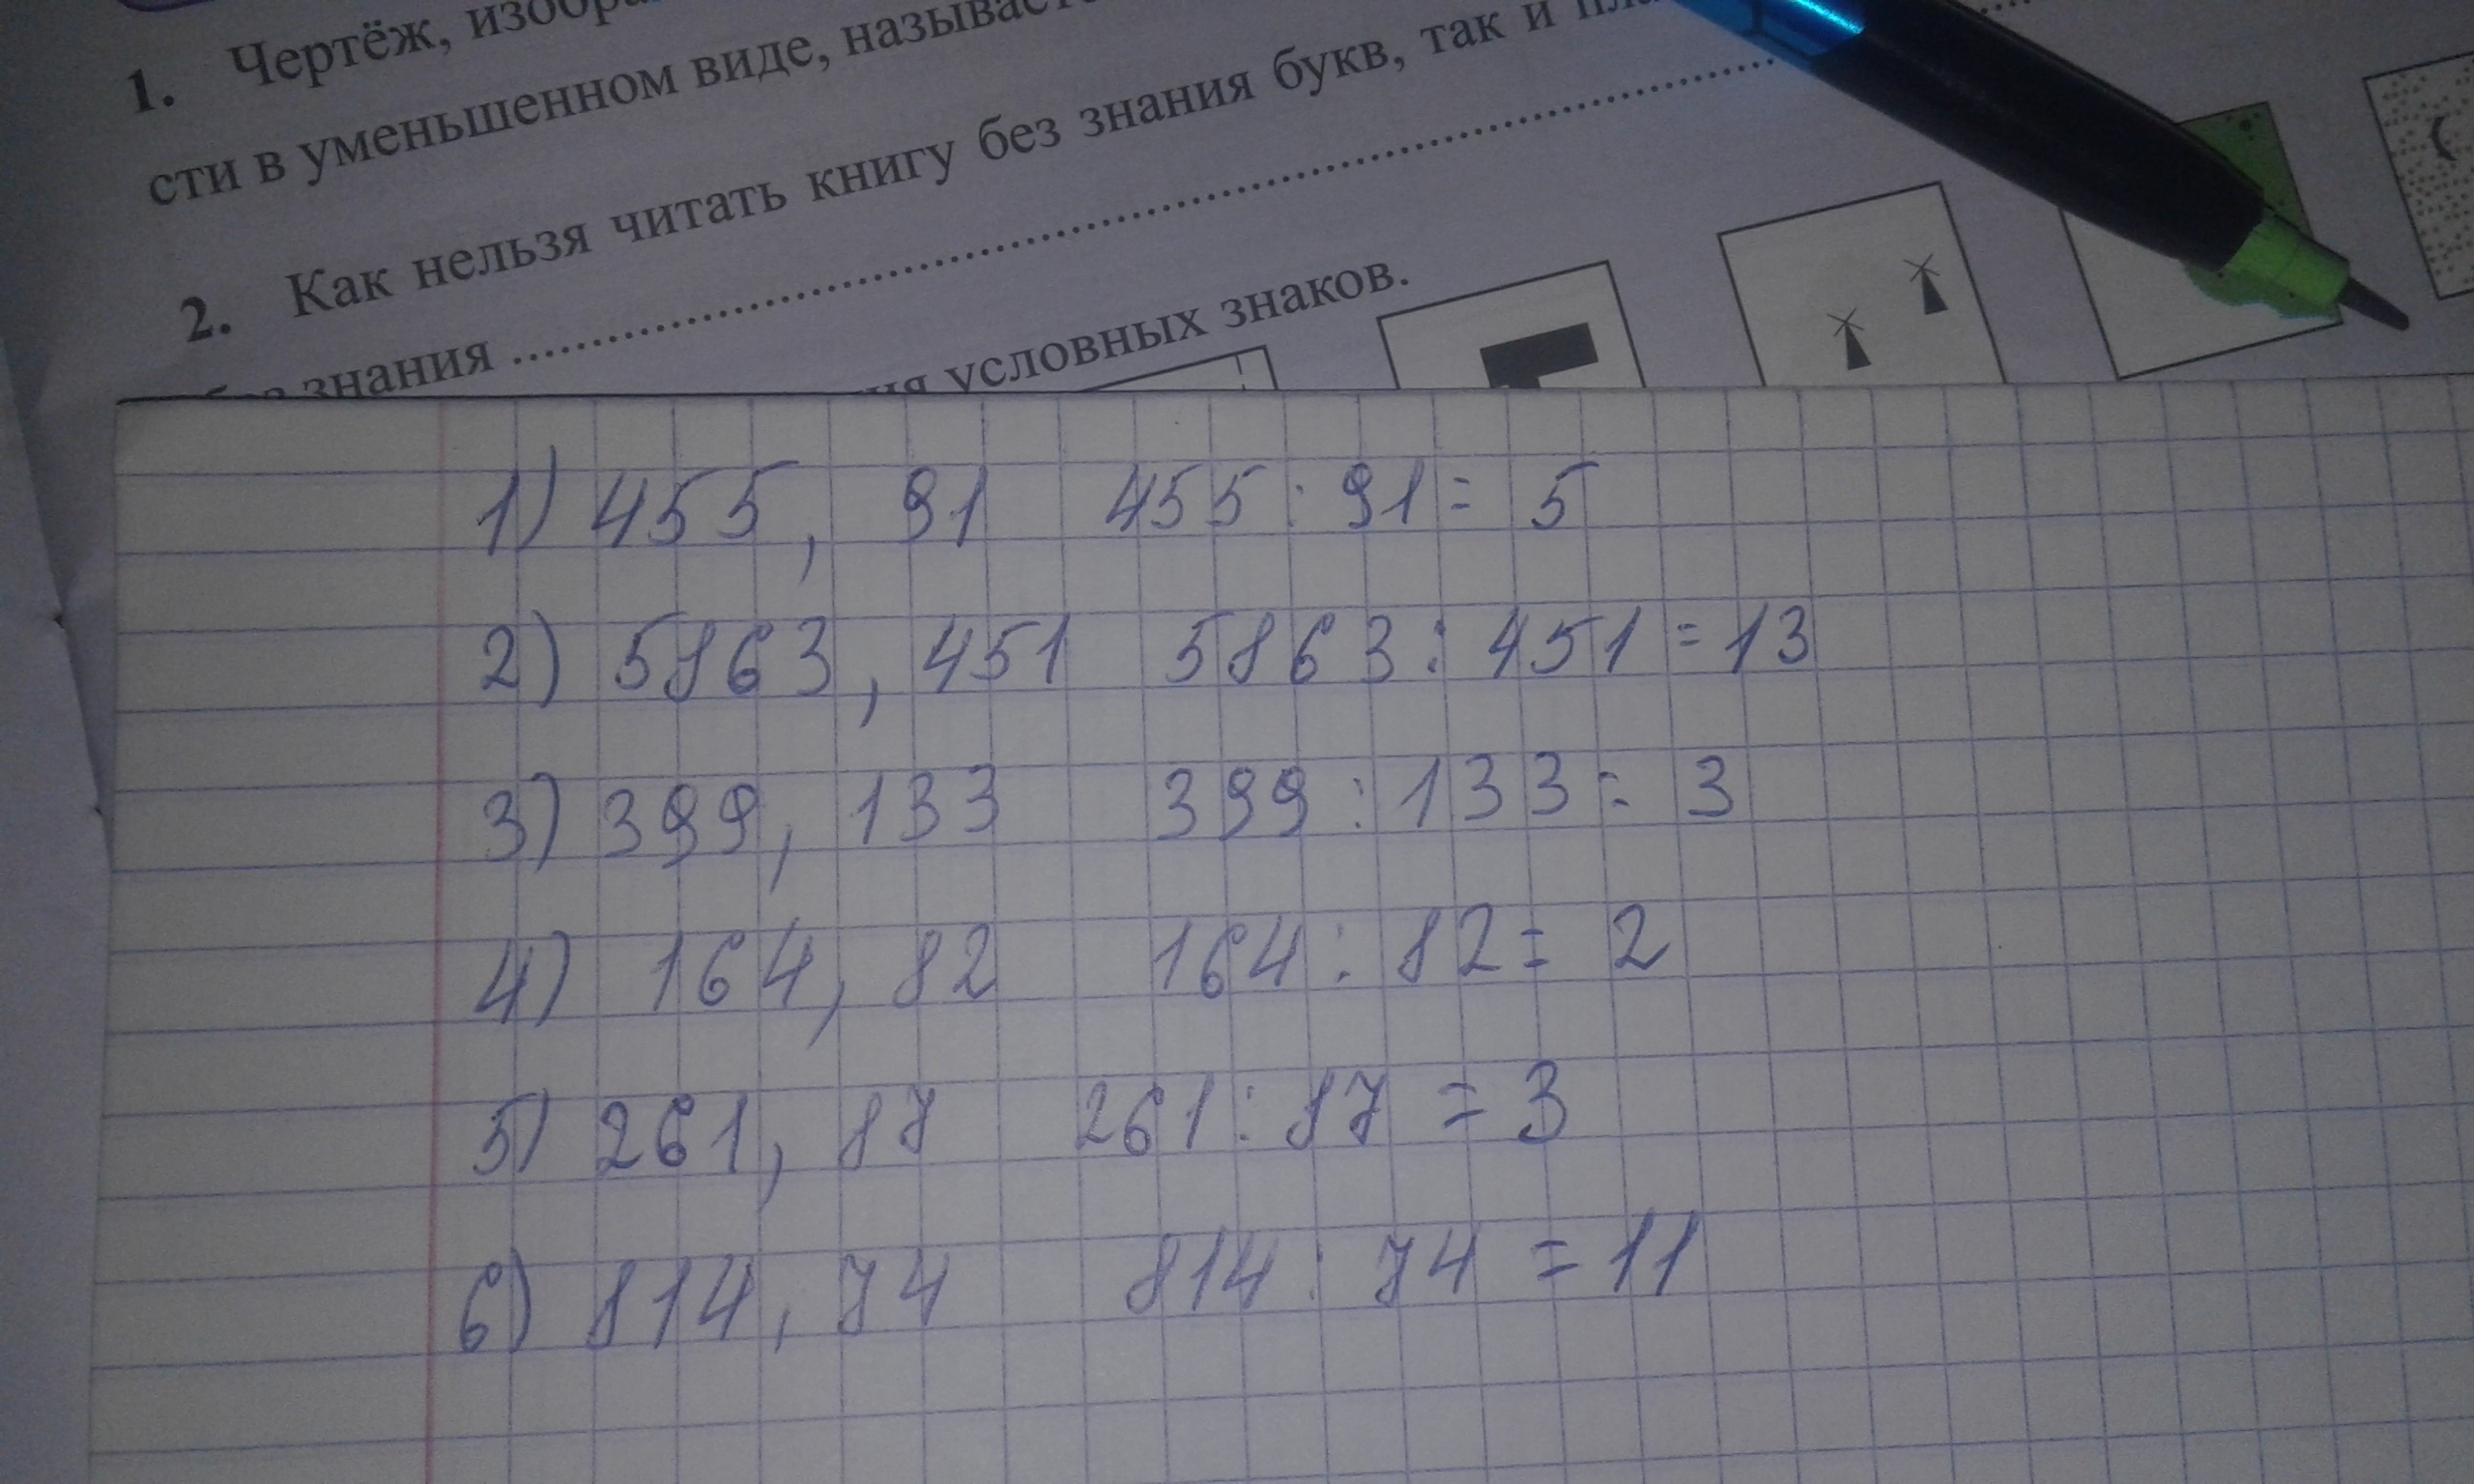 1. Чертёж,
сти в уменьшенном виде,
2. Как нельзя читать книгу без знания букв, так и
знания ..........
условных знаков.
1) 455, 91 455 : 91 = 5
2) 5863, 451 5863 : 451 = 13
3) 399, 133 399 : 133 = 3
4) 164, 82 164 : 82 = 2
5) 261, 87 261 : 87 = 3
6) 814, 74 814 : 74 = 11